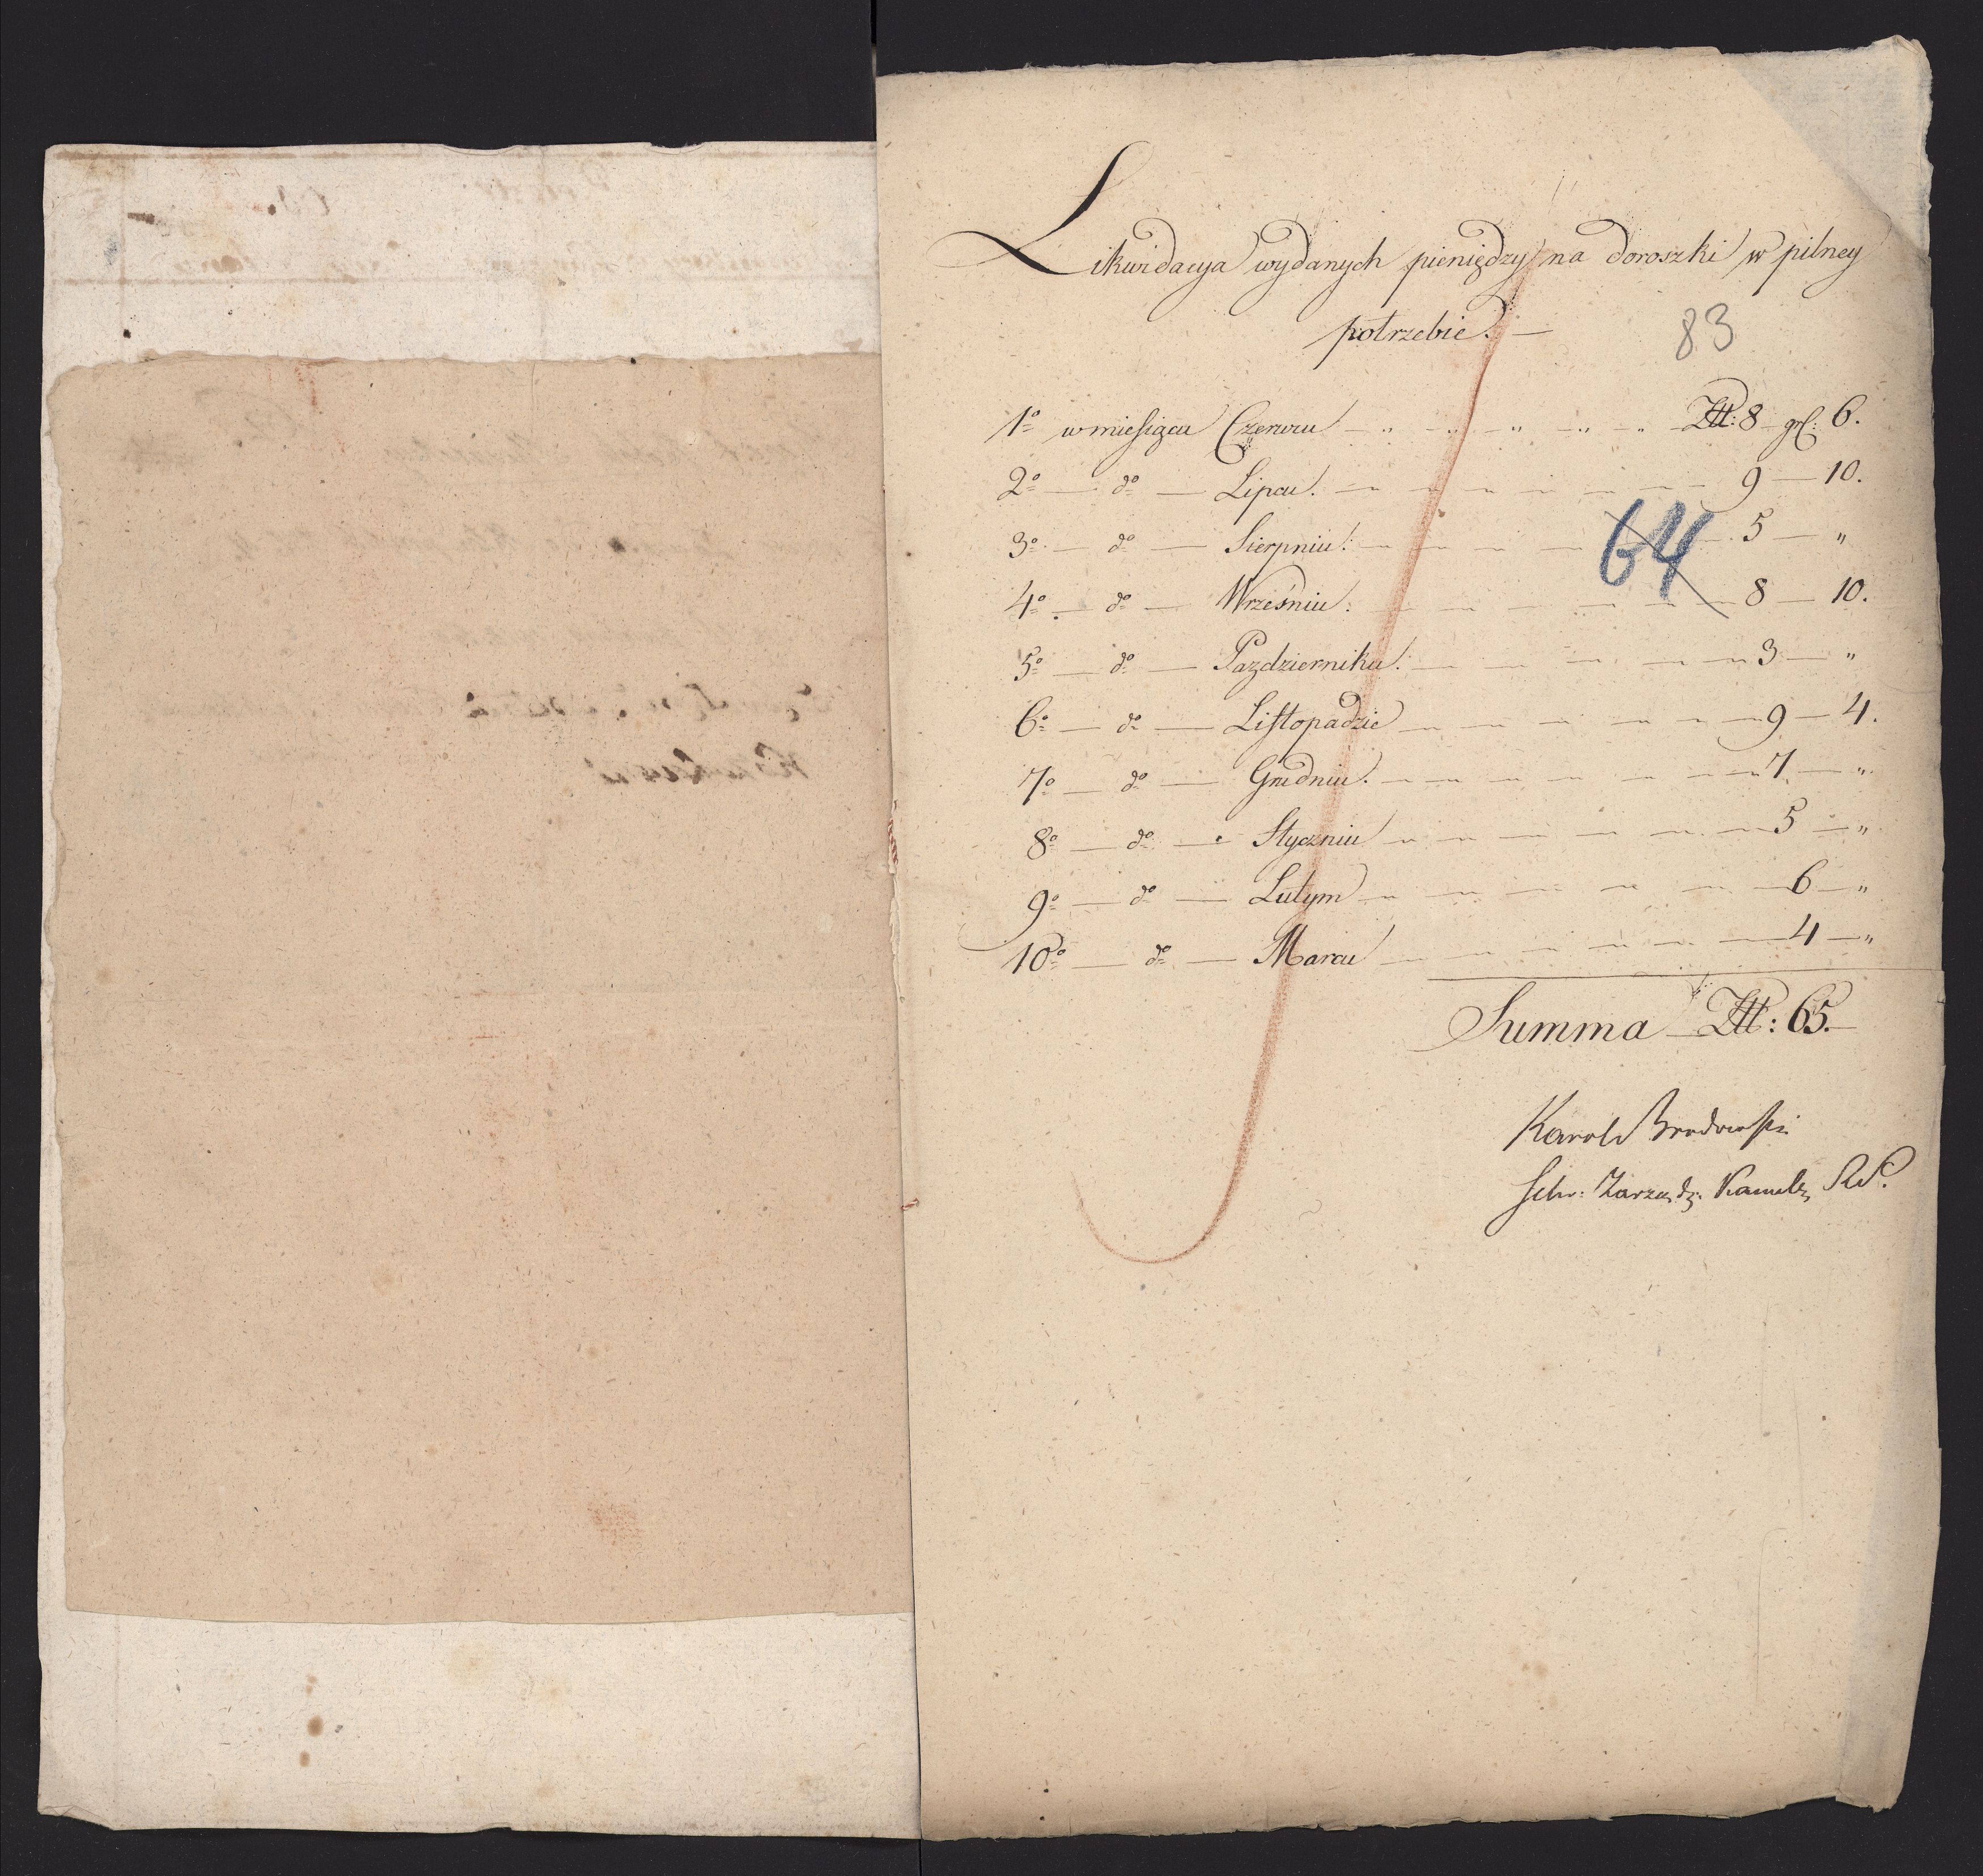 Likwidacya wydanych pieniędzy na doroszki w pilney
potrzebie. —
83
1º w miesiącu Czerwcu — „ — „ — „ — „ — „ — Złł: 8 gr: 6.
2º — dº — Lipcu. — 9 — 10.
3º — dº — Sierpniu. — 5 — „
64
4º — dº — Wrześniu. — 8 — 10.
5º — dº — Pazdzierniku. — 3 — „
6º — dº — Listopadzie — 9 — 4.
7º — dº — Grudniu. — 7 — „
8º — dº — Styczniu — 5 — „
9º — dº — Lutym — 6 — „
10º — dº — Marcu — 4 — „
Summa — Złł: 65. —
Karol Brodowski